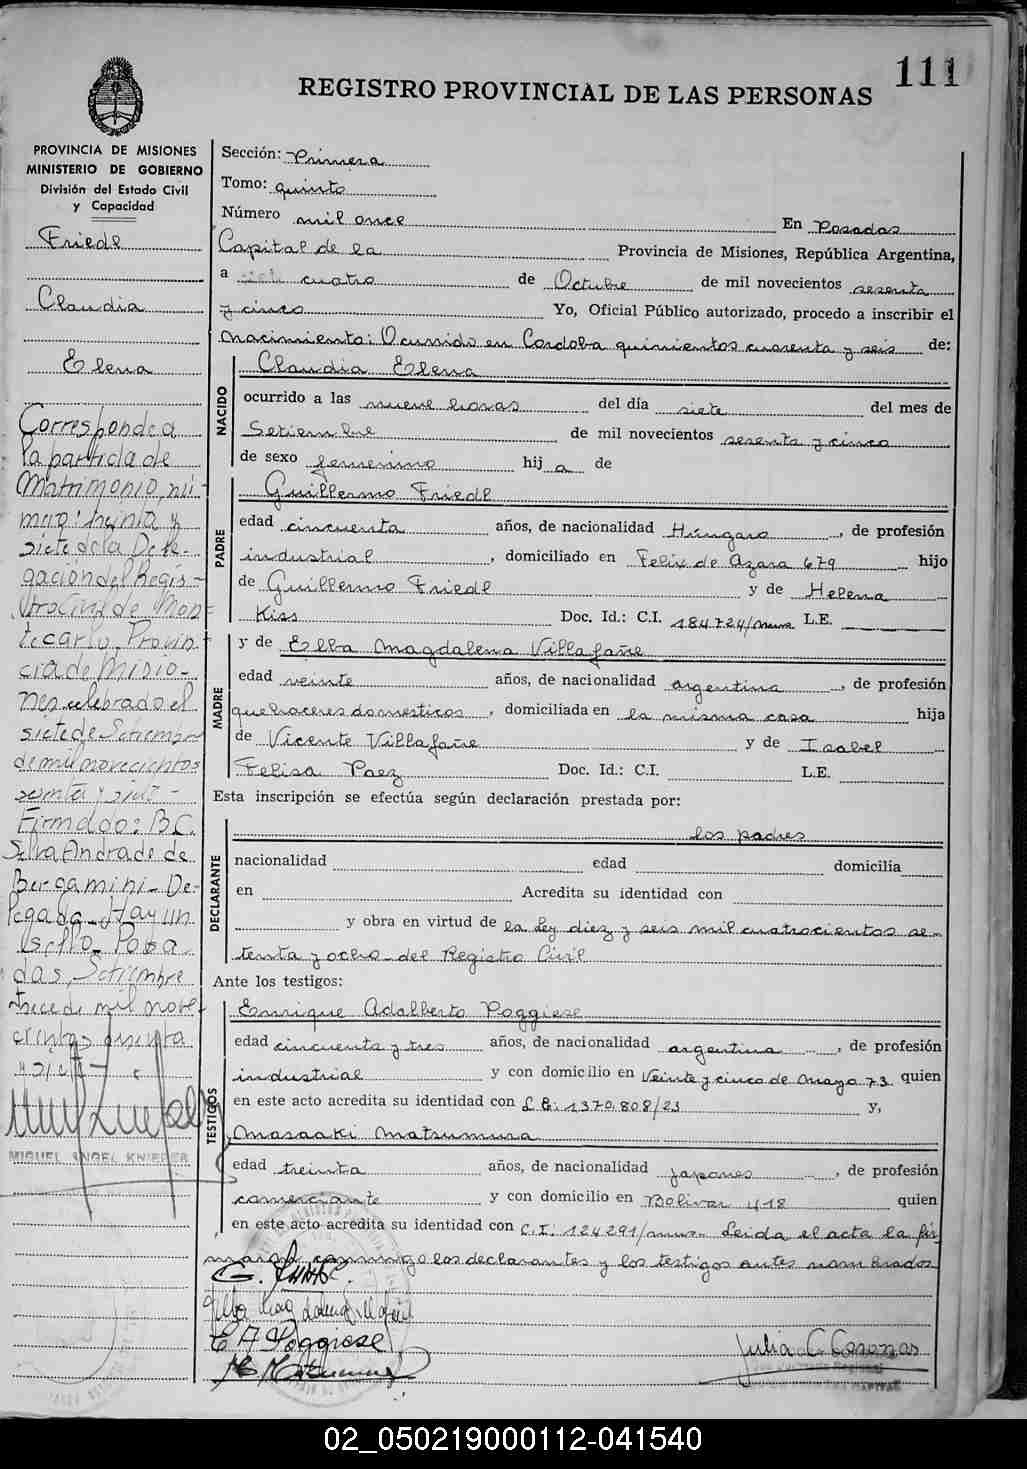 111
REGISTRO PROVINCIAL DE LAS PERSONAS
PROVINCIA DE MISIONES
MINISTERIO DE GOBIERNO
División del Estado Civil
y Capacidad
Friedl
Claudia
Elena
Corresponde a
la partida de
Matrimonio, nú-
mero: treinta y
siete de la Dele-
gación del Regis-
tro Civil de Mon-
tecarlo, Provin-
cia de Misio-
nes celebrado el
siete de Setiembre
de mil novecientos
Firmado: B.C.
Silva Andrade de
Bergamini - De-
legada - Hay un
sello - Posa-
das, Setiembre
trece de mil nove-
cientos
MIGUEL ANGEL KNIEPER
Sección: Primera
Tomo: quinto
Número mil once En Posadas
Capital de la Provincia de Misiones, República Argentina,
a cuatro de Octubre de mil novecientos sesenta
y cinco Yo, Oficial Público autorizado, procedo a inscribir el
Nacimiento: Ocurrido en Cordoba quinientos cuarenta y seis de:
NACIDO
Claudia Elena
ocurrido a las nueve horas del día siete del mes de
Setiembre de mil novecientos sesenta y cinco
de sexo femenino hij a de
PADRE
Guillermo Friedl
edad cincuenta años, de nacionalidad Húngaro, de profesión
industrial, domiciliado en Felix de Azara 679 hijo
de Guillermo Friedl y de Helena
Kiss Doc. Id.: C.I. 184.724/mnes L.E.
MADRE
y de Elba Magdalena Villafañe
edad veinte años, de nacionalidad argentina, de profesión
quehaceres domesticos, domiciliada en la misma casa hija
de Vicente Villafañe y de Isabel
Felisa Paez Doc. Id.: C.I. L.E.
Esta inscripción se efectúa según declaración prestada por:
DECLARANTE
los padres
nacionalidad edad domicilia
en Acredita su identidad con
y obra en virtud de la Ley diez y seis mil cuatrocientos se-
tenta y ocho - del Registro Civil
Ante los testigos:
TESTIGOS
Enrique Adalberto Poggiese
edad cincuenta y tres años, de nacionalidad argentina, de profesión
industrial y con domicilio en Veinte y cinco de Mayo 73 quien
en este acto acredita su identidad con L.E: 1.370.808/23 y,
Masaaki Matsumura
edad treinta años, de nacionalidad japones, de profesión
comerciante y con domicilio en Bolivar 418 quien
en este acto acredita su identidad con C.I: 124291/mnes- Leida el acta la fir
man conmigo los declarantes y los testigos antes nombrados
E A Poggiese
Julia C Coronas
02_050219000112-041540